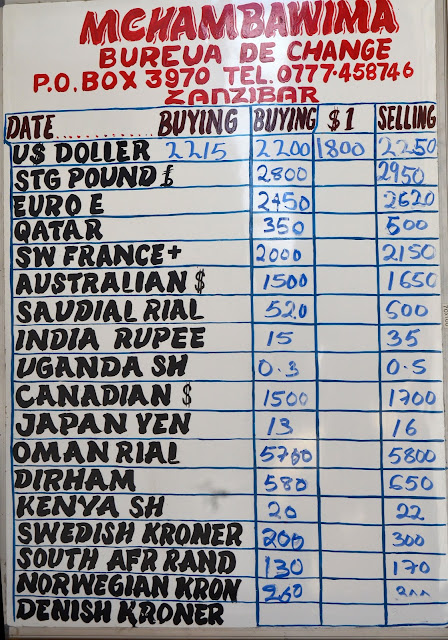 MCHAMBAWIMA
BUREUA DE CHANGE
P.O. BOX 3970 TEL. 0777-458746
ZANZIBAR
DATE......... BUYING BUYING $1 SELLING
US DOLLER 2215 2200 1800 2250
STG POUND £ 2800 2950
EURO E 2450 2620
QATAR 350 500
SW FRANCE+ 2000 2150
AUSTRALIAN $ 1500 1650
SAUDIAL RIAL 520 600
INDIA RUPEE 15 35
UGANDA SH 0.3 0.5
CANADIAN $ 1500 1700
JAPAN YEN 13 16
OMAN RIAL 5700 5800
DIRHAM 580 650
KENYA SH 20 22
SWEDISH KRONER 200 300
SOUTH AFR RAND 130 170
NORWEGIAN KRON 260
DENISH KRONER